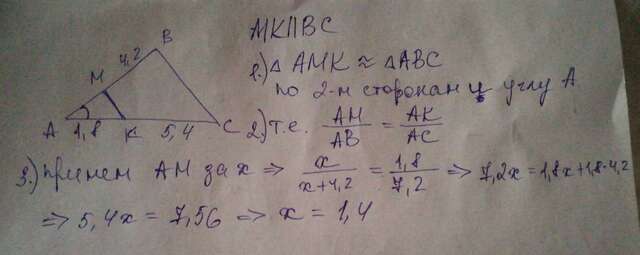 МКПВС
B
4,2
M
A
1,8
K
5,4
C
1.) △ AMK ≈ △ABC
по 2-м сторонам и углу A
2.) т.е. AM/AB = AK/AC
3.) примем AM за x ⇒ x/x+4,2 = 1,8/7,2 ⇒ 7,2x = 1,8x+1,8·4,2
⇒ 5,4x = 7,56 ⇒ x = 1,4